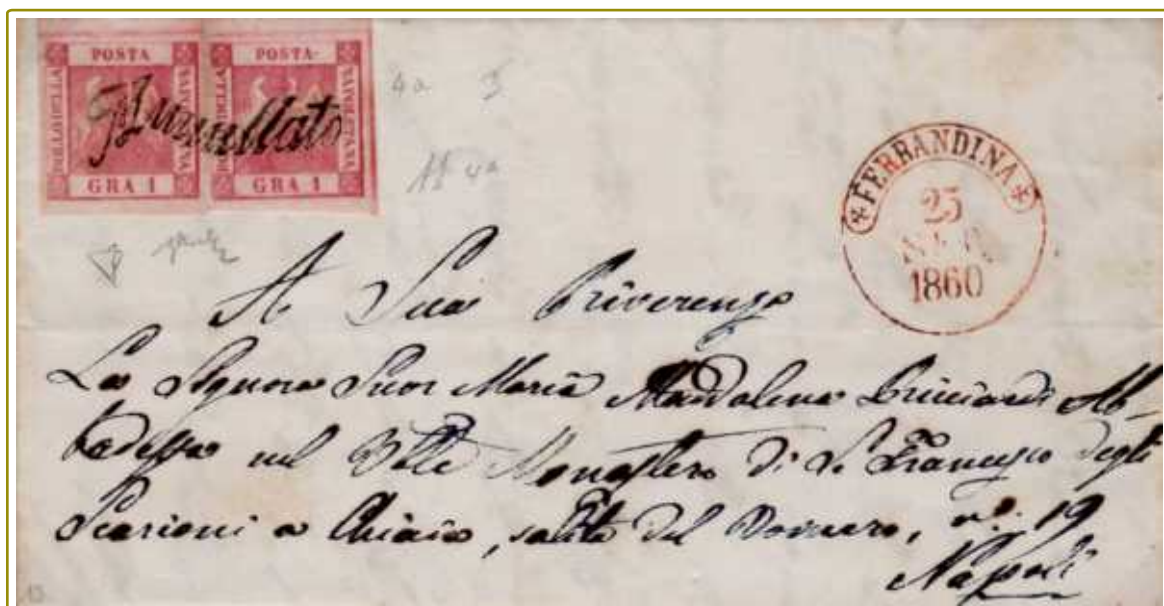 POSTA POSTA
BOLLO DELLA NAPOLETANA BOLLO DELLA NAPOLETANA
Annullato
GRA 1 GRA 1
4a
4a
FERRANDINA
25
1860
A Sua Riverenza
La Signora Suor Maria Maddalena Ricciardi Ab-
badessa nel Monastero di S. Francesco degli
Scarioni a Chiaia, salita del Vomero, n.º 19
Napoli
13